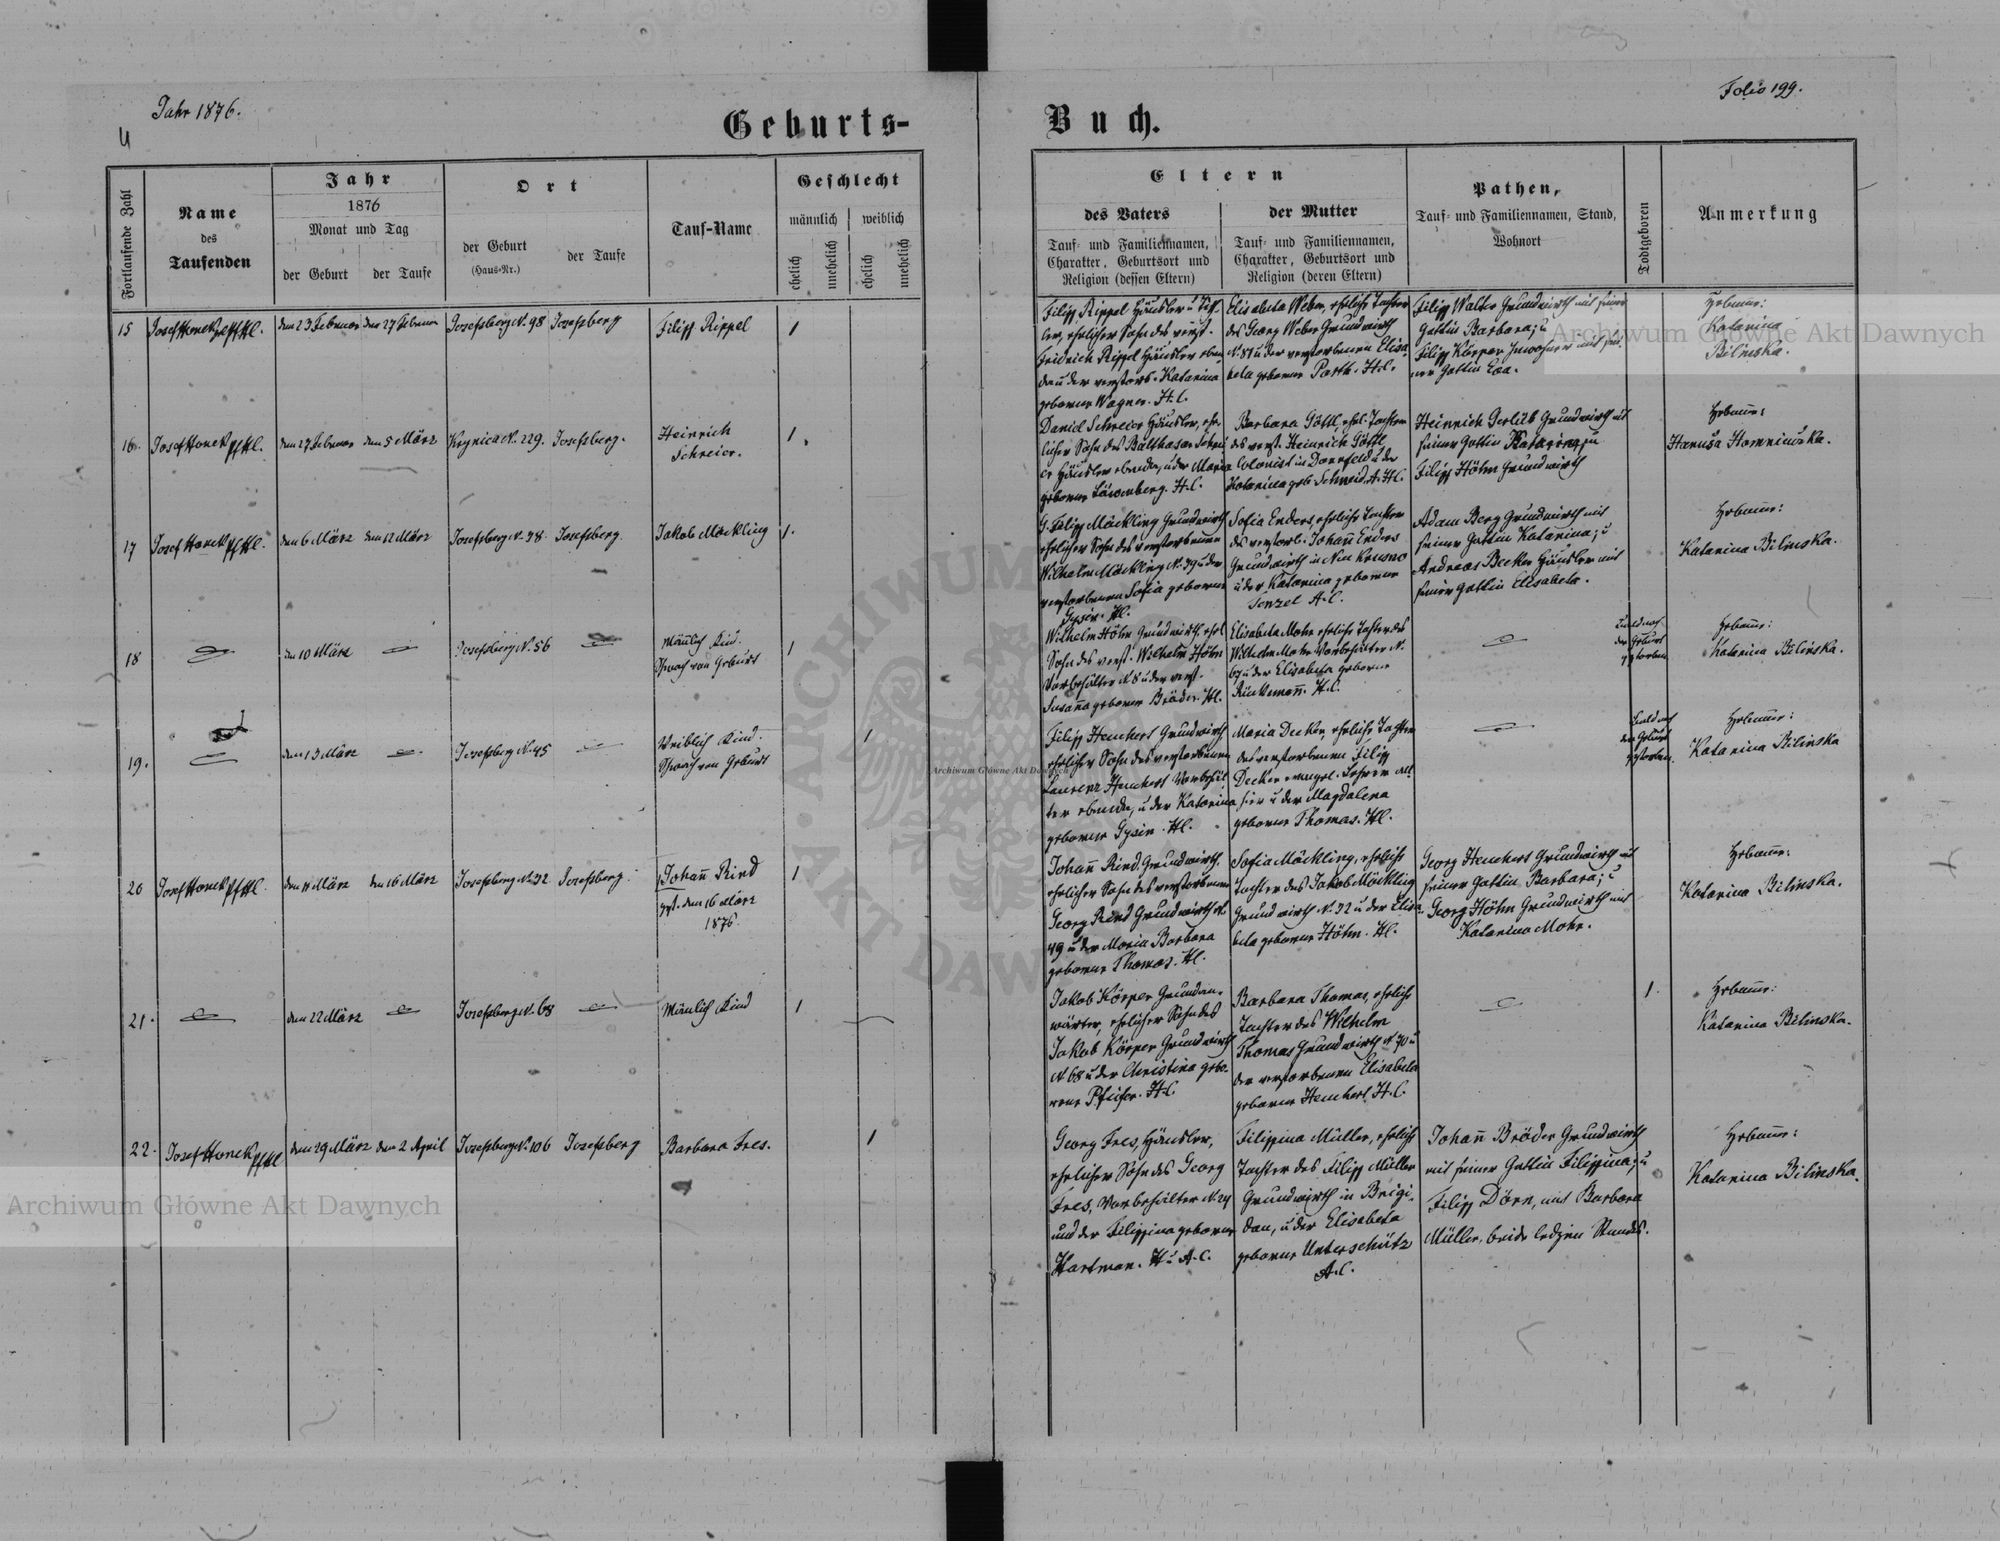 Jahr 1876.
Folio 199.
4
Geburts-
Buch.
Fortlaufende Zahl
Name
des
Taufenden
Jahr
1876
Monat und Tag
der Geburt
der Taufe
Ort
der Geburt
(Haus-Nr.)
der Taufe
Tauf-Name
Geschlecht
männlich
weiblich
ehelich
unehelich
ehelich
unehelich
Eltern
des Vaters
Tauf- und Familiennamen,
Charakter, Geburtsort und
Religion (dessen Eltern)
der Mutter
Tauf- und Familiennamen,
Charakter, Geburtsort und
Religion (deren Eltern)
Pathen,
Tauf- und Familiennamen, Stand,
Wohnort
Todtgeboren
Anmerkung
15
Josef Honek
den 23 Februar
den 27 Februar
Josefsberg N. 98
Josefsberg
Filipp Rippel
1
Filipp Rippel Häusler u
ehelicher Sohn des verst.
Fridrich Rippel Häusler eben
da u der verstorb. Katarina
geborne Wagner. H.C.
Elisabeta Weber, eheliche Tochter
des Georg Weber Grundwirth
N. 81 u der verstorbenen Elisa
beta geborne Parth. H.C.
Filipp Walter Grundwirth mit seiner
Gattin Barbara; u
Filipp Körper Inwohner mit sei
ner Gattin Eva.
Hebamme:
Katarina
Bilinska.
16.
Josef Honek Pf HC.
den 27 Februar
den 5 März
Krynica N. 229.
Josefsberg.
Heinrich
Schreier.
1.
Daniel Schreier Häusler, ehe
licher Sohn des Balthasar Schrei
er Häusler ebenda, u der Maria
geborne Löwenberg. H.C.
Barbara Göttl, ehel. Tochter
des verst. Heinrich Göttl
Colonist in Dornfeld u der
Katarina geb. Schmid. A. H.C.
Heinrich Gerlib Grundwirth mit
seiner Gattin Katarina; u
Filipp Höhn Grundwirth
Hebamme:
Hanuśa Homniuśka.
17
Josef Honek Pf HC.
den 6 März
den 12 März
Josefsberg N. 38.
Josefsberg.
Jakob Möckling
1.
G. Filipp Möckling Grundwirth
ehelicher Sohn des verstorbenen
Wilhelm Möckling N. 39 u der
verstorbenen Sofia geborne
Gysin. HC.
Sofia Enders, eheliche Tochter
des verstorb. Johann Enders
Grundwirth in Neu Kousno
u der Katarina geborne
Tenzel A.C.
Adam Berg Grundwirth mit
seiner Gattin Katarina; u
Andreas Becker Häusler mit
seiner Gattin Elisabeta.
Hebamme:
Katarina Bilinska.
18
den 10 März
Josefsberg N. 56
Männlich Kind.
Schwach von Geburt
1
Wilhelm Höhn Grundwirth, ehel
Sohn des verst. Wilhelm Höhn
Vorbehälter N 8 u der verst.
Susanna geborne Bröder. HC.
Elisabeta Mohr eheliche Tochter des
Wilhelm Mohr Vorbehälter N.
67 u der Elisabeta geborne
Rückemann. H.C.
bald nach
der Geburt
gestorben.
Hebamme:
Katarina Bilinska.
19.
den 13 März
Josefsberg N. 45
Weiblich Kind.
Schwach von Geburt
1
Filipp Henchert Grundwirth
ehelicher Sohn des verstorbenen
Laurenz Henchert Vorbehäl
ter ebenda, u der Katarina
geborne Gysin. HC.
Maria Decker, eheliche Tochter
des verstorbenen Filipp
Decker evangel. Lehrer all
hier u der Magdalena
geborne Thomas. HC.
bald nach
der Geburt
gestorben.
Hebamme:
Katarina Bilinska
20
Josef Honek Pf HC.
den 14 März
den 16 März
Josefsberg N. 32
Josefsberg.
Johann Rind
gest. den 16 März
1876.
1
Johann Rind, Grundwirth,
ehelicher Sohn des verstorbenen
Georg Rind Grundwirth N.
49 u der Maria Barbara
geborne Thomas. HC.
Sofia Möckling, eheliche
Tochter des Jakob Möckling
Grundwirth N. 32 u der Elisa
beta geborne Höhn. HC.
Georg Henchert Grundwirth mit
seiner Gattin Barbara; u
Georg Höhn Grundwirth mit
Katarina Mohr.
Hebamme:
Katarina Bilinska.
21.
den 22 März
Josefsberg N. 68
Mänlich Kind
1
Jakob Körper Grundan-
wärter, ehelicher Sohn des
Jakob Körper Grundwirth
N 68 u der Christina gebo-
rene Pfeifer. H.C.
Barbara Thomas, eheliche
Tochter des Wilhelm
Thomas Grundwirth N. 70 u
der verstorbenen Elisabeta
geborne Henchert H.C.
1.
Hebamme:
Katarina Bilinska.
22.
Josef Honek Pf HC
den 29 März
den 2 April
Josefsberg N. 106
Josefsberg
Barbara Fres.
1
Georg Fres, Häusler,
ehelicher Sohn des Georg
Fres, Vorbehälter N 24
und der Filippina geborne
Hartman. H u A.C.
Filippina Müller, eheliche
Tochter des Filipp Müller
Grundwirth in Brigi-
dau, u der Elisabeta
geborne Unterschütz
A.C.
Johann Bröder Grundwirth
mit seiner Gattin Filippina; u
Filipp Dörn, mit Barbara
Müller, beide ledigen Standes.
Hebamme:
Katarina Bilinska.
Archiwum Główne Akt Dawnych
Archiwum Główne Akt Dawnych
Archiwum Główne Akt Dawnych
ARCHIWUM
AKT DAW